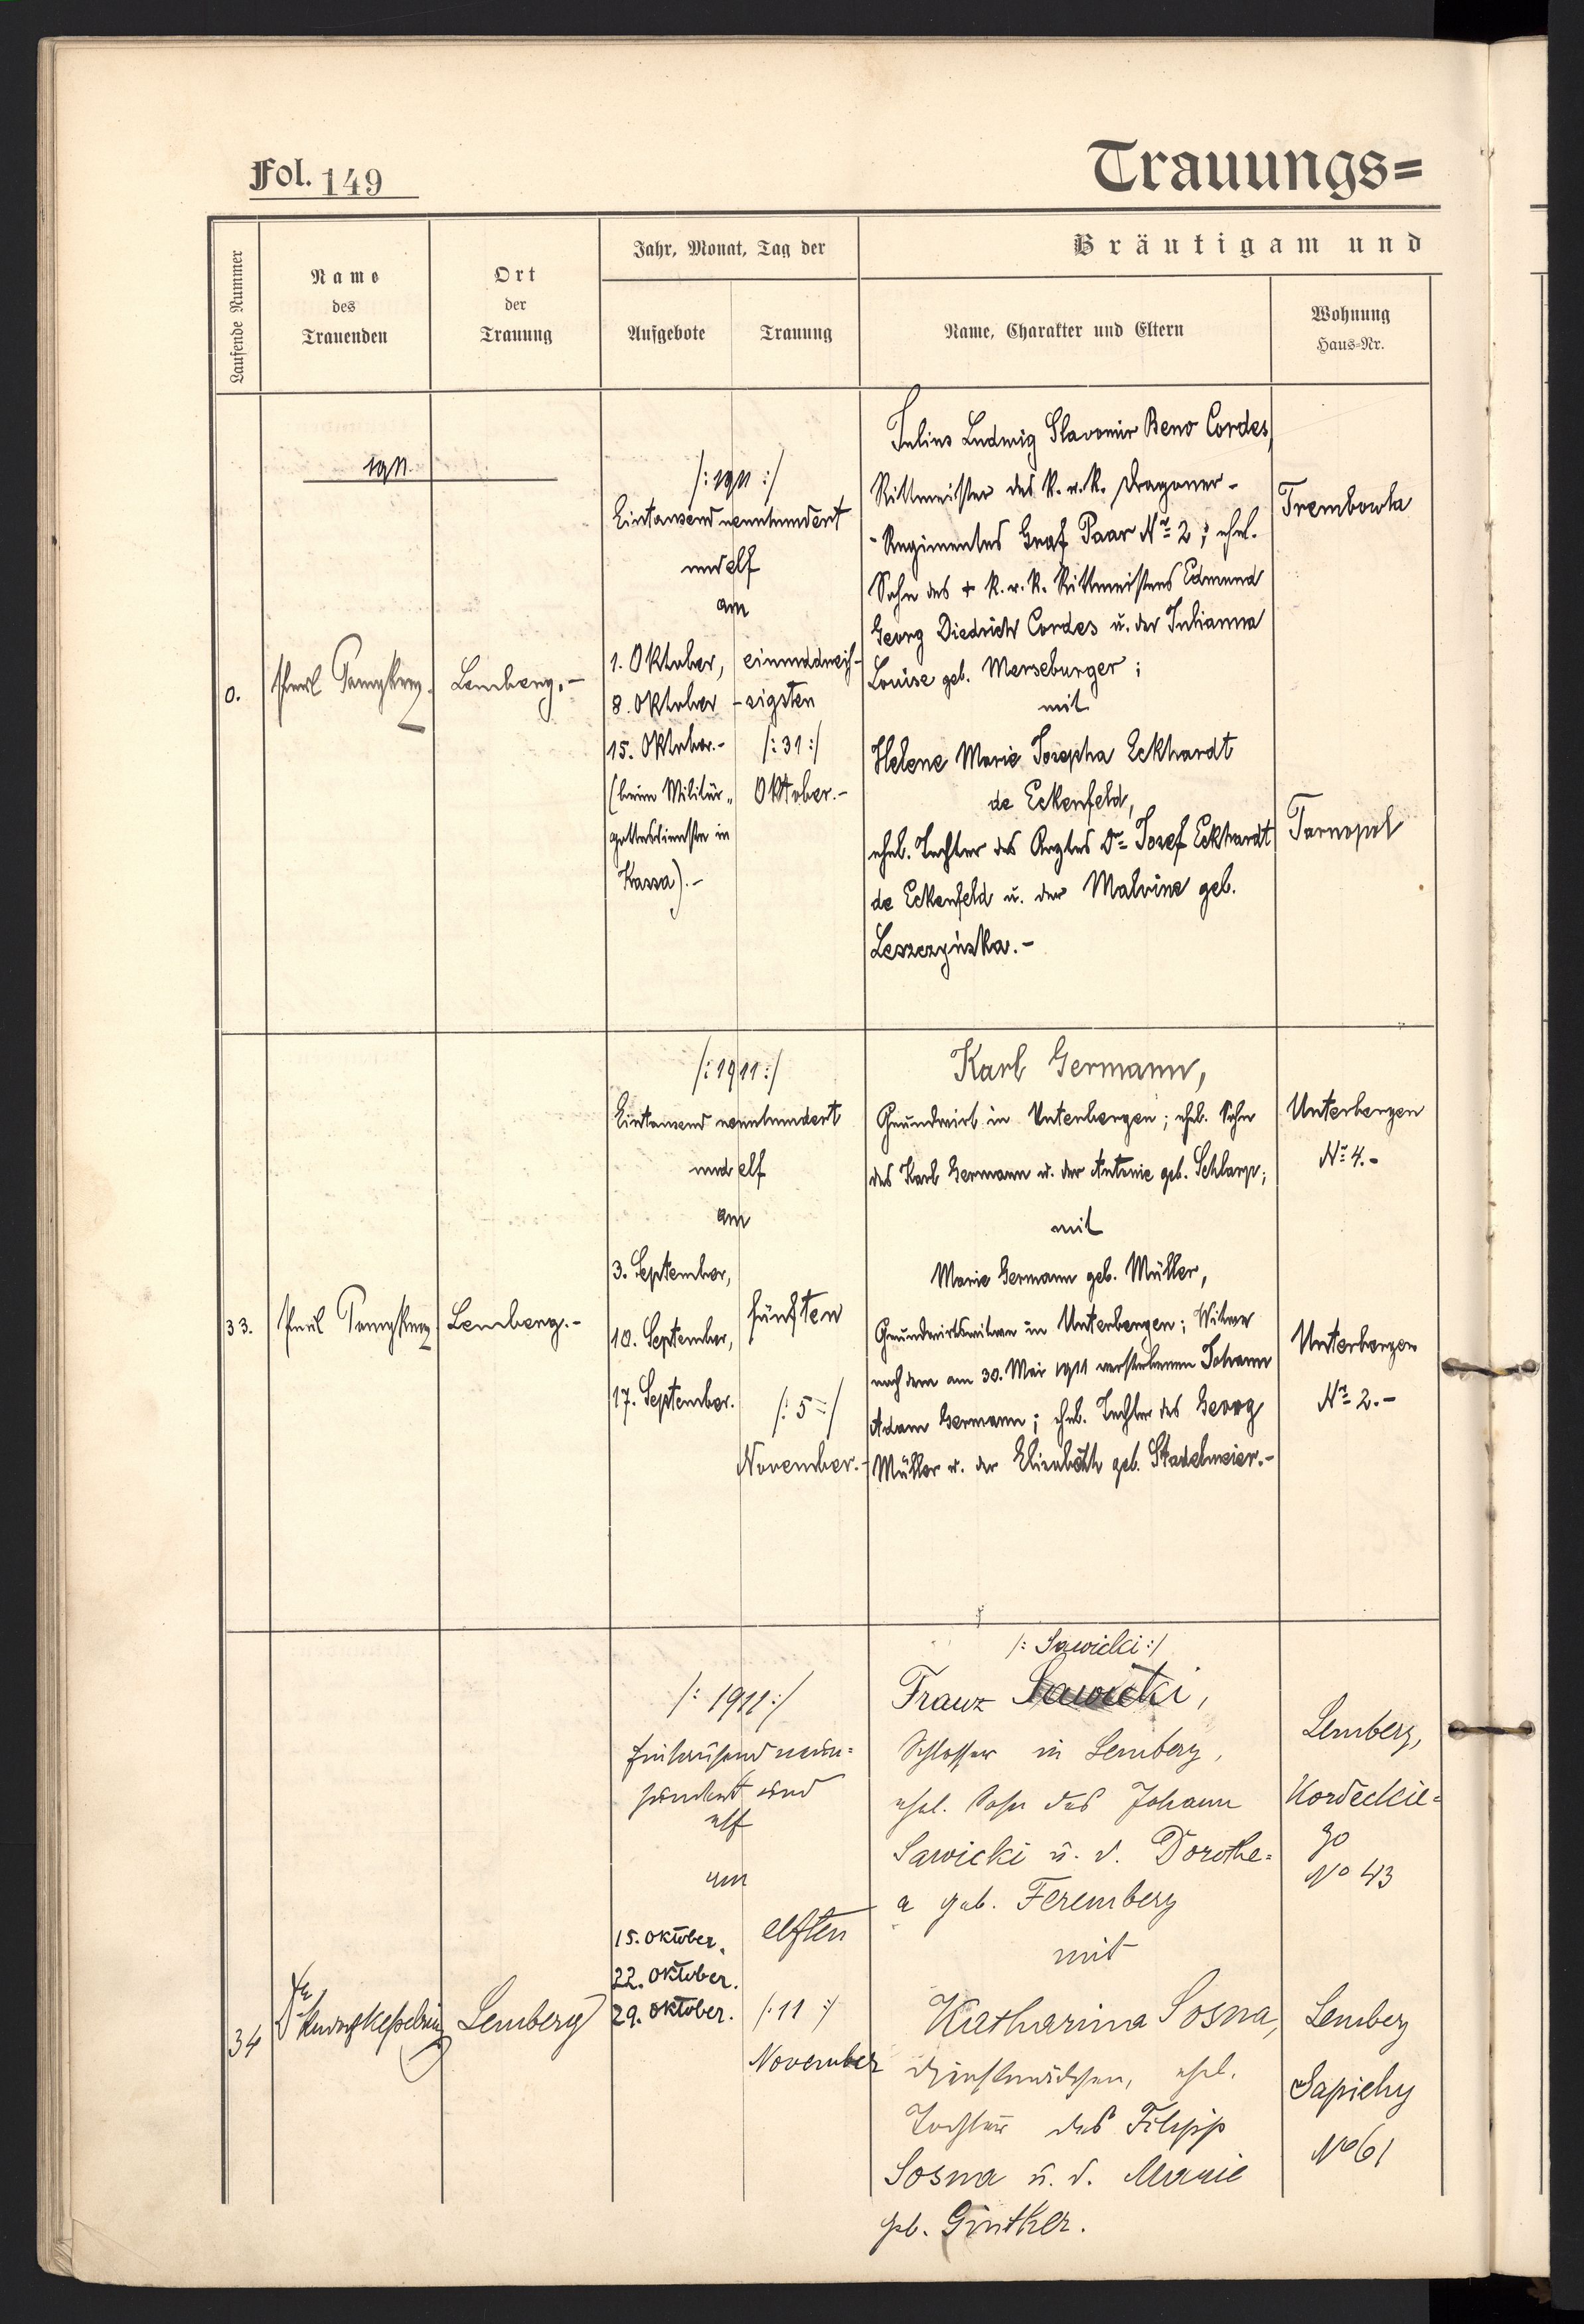 Fol. 149
Trauungs=
Laufende Nummer
Name
des
Trauenden
Ort
der
Trauung
Jahr, Monat, Tag der
Aufgebote
Trauung
Bräutigam und
Name, Charakter und Eltern
Wohnung
Haus-Nr.
1911.
0.
Lemberg.-
/: 1911 :/
Eintausend neunhundert
und elf
am
1. Oktober,
8. Oktober
15. Oktober.-
(beim Militär-
gottesdienste in
Kassa).-
einunddreis-
-sigsten
/: 31 :/
Oktober.-
Julius Ludwig Slavomir Beno Cordes,
Rittmeister des k. u. k. Dragoner-
-Regimentes Graf Paar No 2; ehel.
Sohn des + k. u. k. Rittmeisters Edmund
Georg Diedrich Cordes u. der Julianna
Louise geb. Merseburger;
mit
Helene Marie Josepha Eckhardt
de Eckenfeld,
ehel. Tochter des Arztes Dr Josef Eckhardt
de Eckenfeld u. der Malvine geb.
Leszczyńska.-
Trembowla
Tarnopol
33.
Lemberg.-
/: 1911 :/
Eintausend neunhundert
und elf
am
3. September,
10. September,
17. September.
fünften
/: 5 :/
November.-
Karl Germann,
Grundwirt in Unterbergen; ehel. Sohn
des Karl Germann u. der Antonie geb. Schlarp;
mit
Marie Germann geb. Müller,
Grundwirtswitwe in Unterbergen; Witwe
nach dem am 30. Mai 1911 verstorbenen Johann
Adam Germann; ehel. Tochter des Georg
Müller u. der Elisabeth geb. Stadelmeier.-
Unterbergen
No 4.-
Unterbergen
No 2.-
34
Lemberg
/: 1911 :/
Eintausend neun=
hundert und
elf
am
15. Oktober.
22. Oktober.
29. Oktober.
elften
/: 11 :/
November
/: Sawicki :/
Franz Sawicki,
Schlosser in Lemberg,
ehel. Sohn des Johann
Sawicki u. d. Dorothe=
a geb. Feremberg
mit
Katharina Sosna,
Dienstmädchen, ehel.
Tochter des Filipp
Sosna u. d. Marie
geb. Ginther.
Lemberg,
Kordeckie=
go
No 43
Lemberg
Sapiehy
No 61